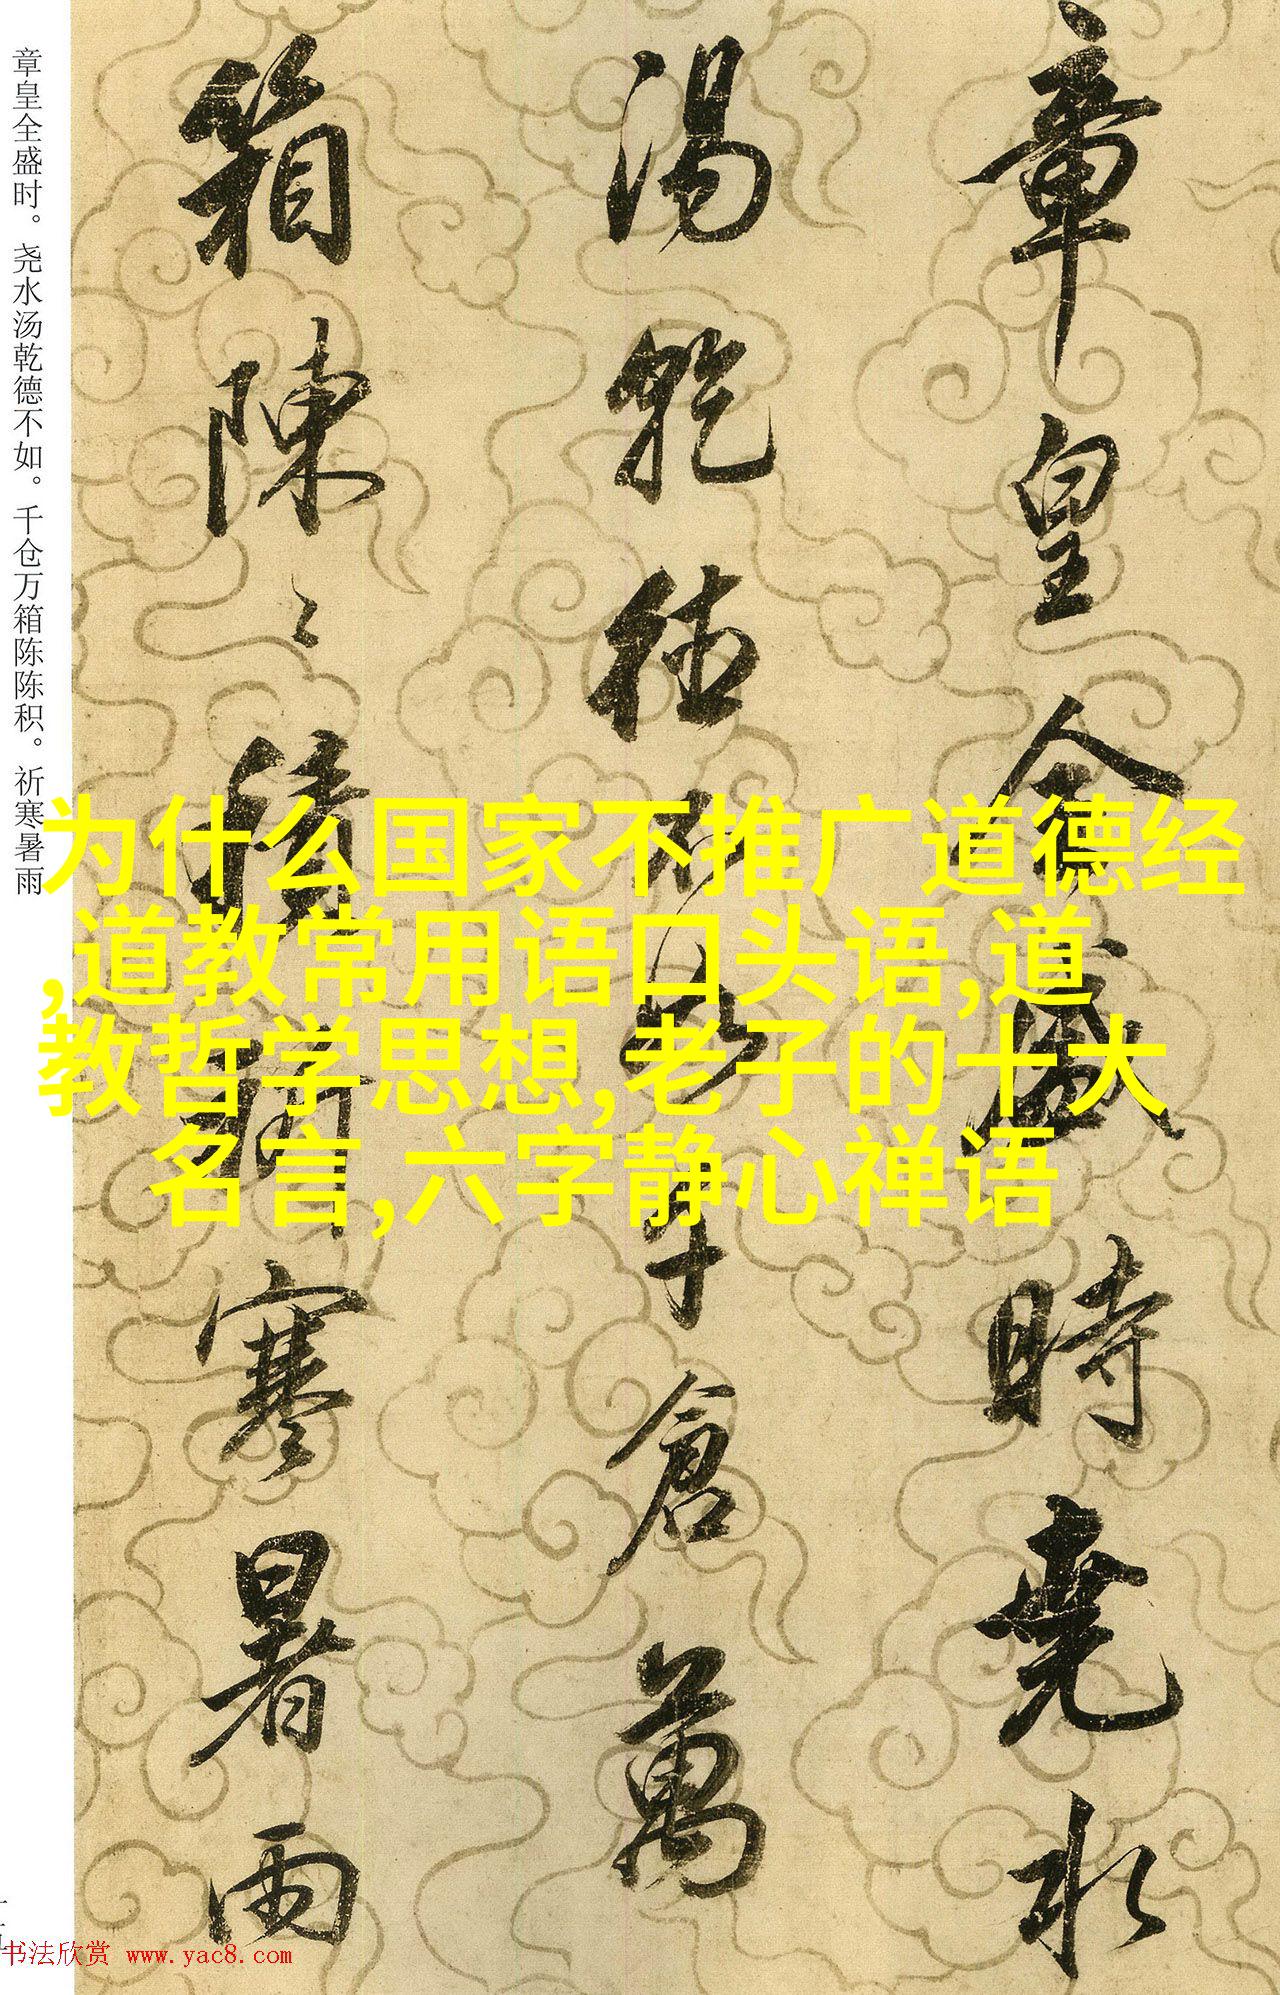 章皇全盛时。尧水汤乾德不如。千仓万箱陈陈积。祈寒暑雨
章皇全盛時堯水
湯乾德不如千倉萬
箱陳〻積祈寒暑雨
为什么国家不推广道德经
,道教常用语口头语,道
教哲学思想,老子的十大
名言,六字静心禅语
书法欣赏 www.yac8.com